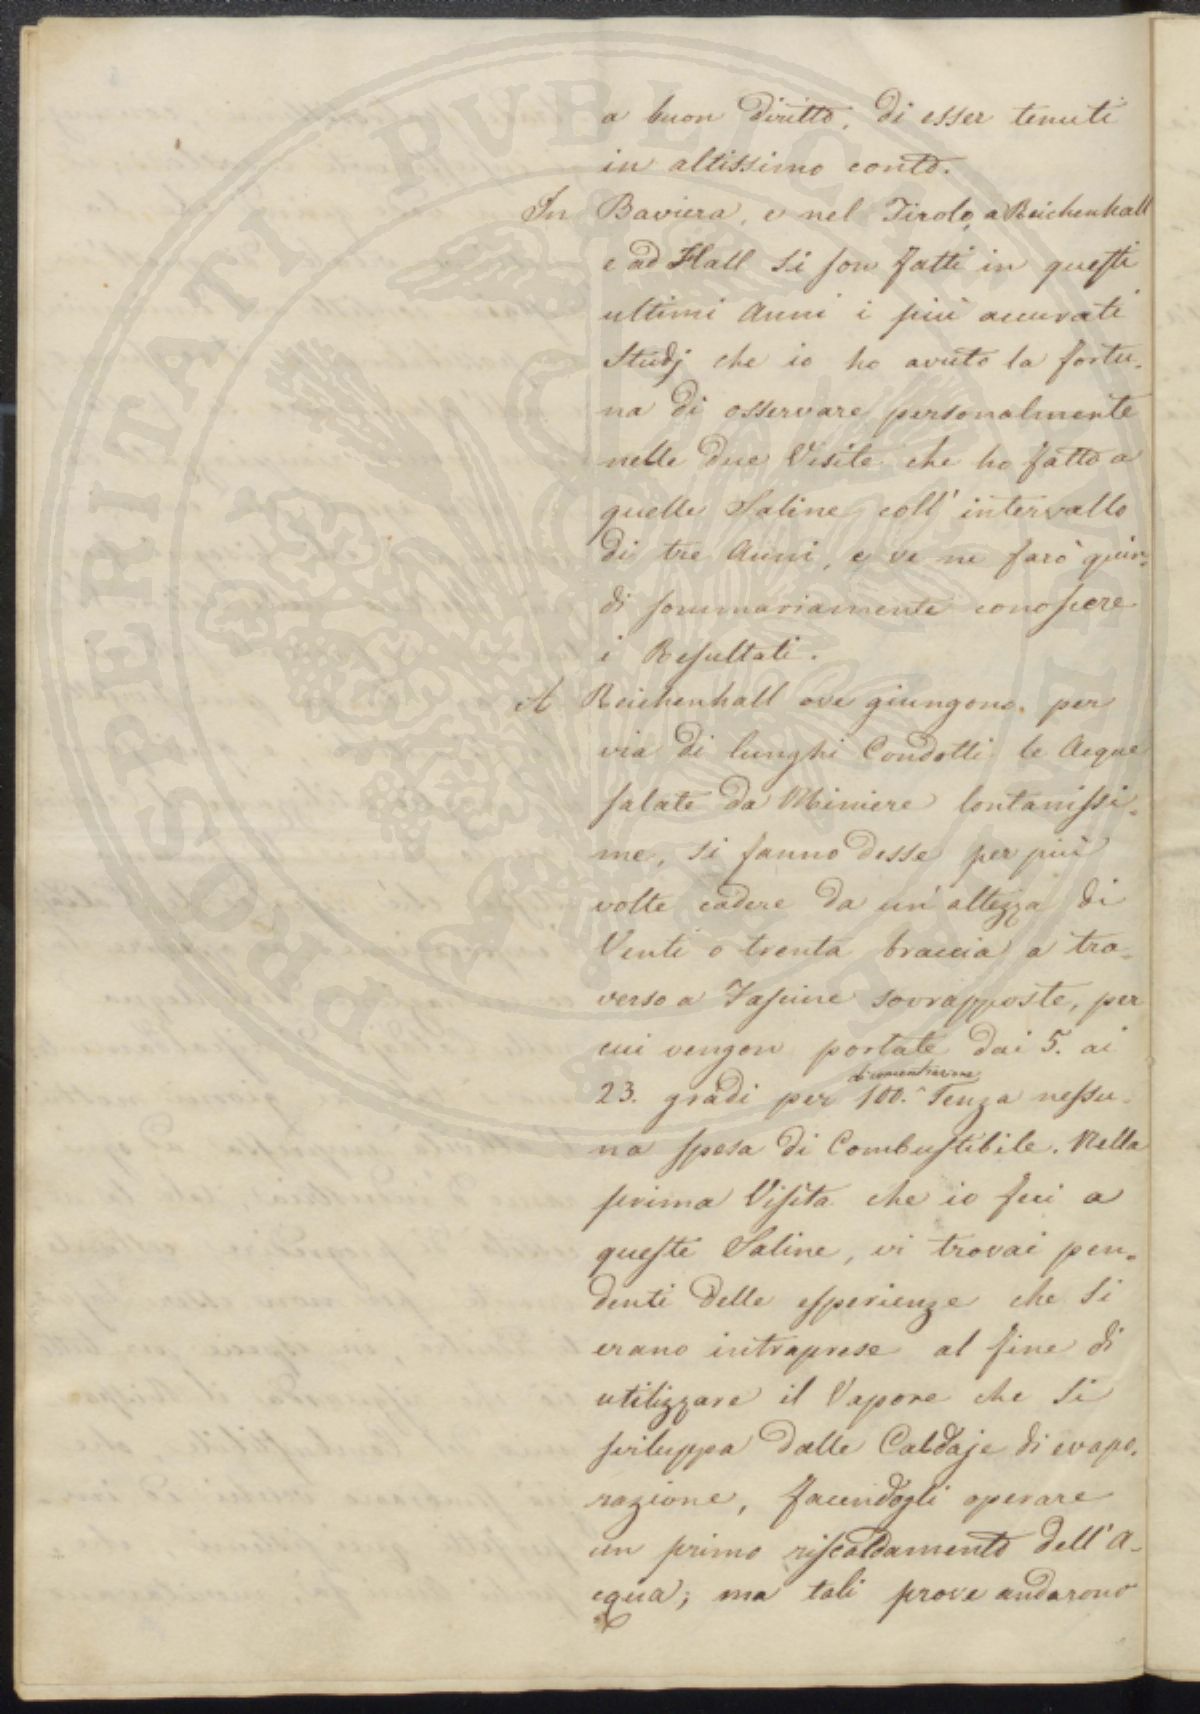 a buon diritto, di esser tenuti
in altissimo conto.
In Baviera, e nel Tirolo, a Reichenhall
e ad Hall si son fatti in questi
ultimi Anni i più accurati
Studj che io ho avuto la fortu-
na di osservare personalmente
nelle due Visite che ho fatto a
quelle Saline coll' intervallo
di tre Anni, e ve ne farò quin-
di sommariamente conoscere
i Resultati.
A Reichenhall ove giungono per
via di lunghi Condotti le Acque
salate da Miniere lontanissi-
me, si fanno desse per più
volte cadere da un' altezza di
Venti o trenta braccia a tra-
verso a Fascine sovrapposte, per
cui vengon portate dai 5. ai
di concentrazione
23. gradi per 100. ^ senza nessu-
na spesa di Combustibile. Nella
prima Visita che io feci a
queste Saline, vi trovai pen-
denti delle esperienze che si
erano intraprese al fine di
utilizzare il Vapore che si
sviluppa dalle Caldaje di evapo-
razione, facendogli operare
un primo riscaldamento dell' A-
cqua; ma tali prove andarono
PROSPERITATI PUBLICAE